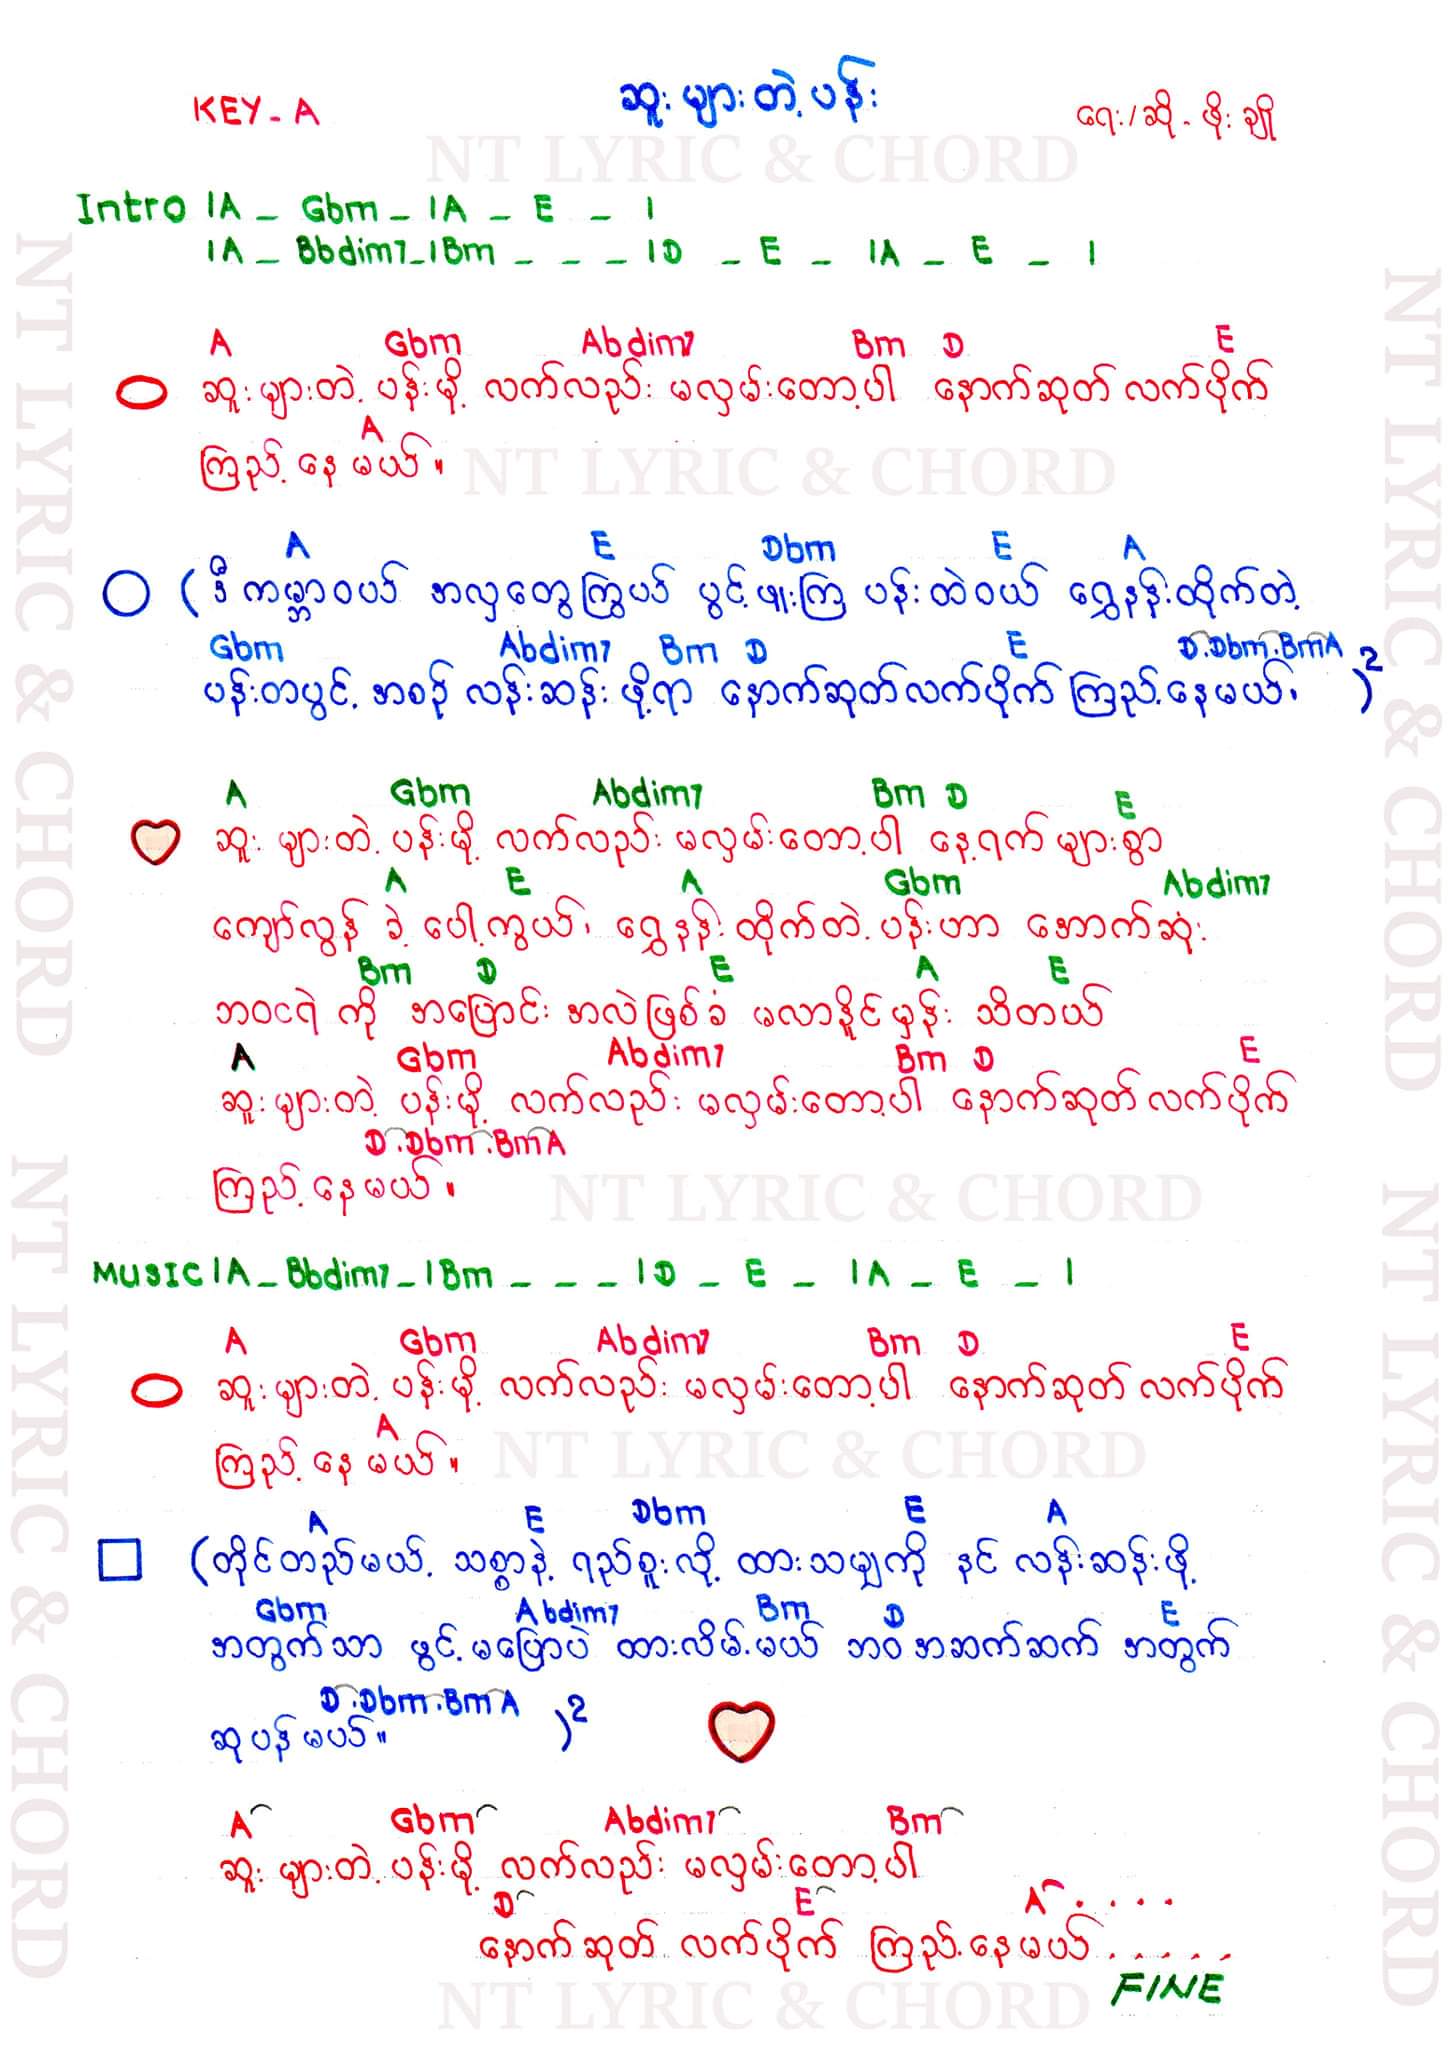 KEY - A
ဆူးများတဲ့ပန်း
ရေး/ဆို - ဖိုးချို
NT LYRIC & CHORD
Intro |A _ Gbm _ |A _ E _ |
|A _ Bbdim7 _ |Bm _ _ _ |D _ E _ |A _ E _ |
A Gbm Abdim7 Bm D E
ဆူးများတဲ့ ပန်းမို့ လက်လည်း မလှမ်းတော့ပါ နောက်ဆုတ် လက်ပိုက်
A
ကြည့်နေမယ်။
NT LYRIC & CHORD
A E Dbm E A
(ဒီကမ္ဘာဝယ် အလှတွေကြွယ် ပွင့်ဖူးကြ ပန်းထဲဝယ် ရွှေနန်းထိုက်တဲ့
Gbm Abdim7 Bm D E D.Dbm.BmA
ပန်းတပွင့် အစဉ် လန်းဆန်းဖို့ရာ နောက်ဆုတ်လက်ပိုက် ကြည့်နေမယ်၊ )2
A Gbm Abdim7 Bm D E
ဆူးများတဲ့ ပန်းမို့ လက်လည်း မလှမ်းတော့ပါ နေ့ရက်များစွာ
A E A Gbm Abdim7
ကျော်လွန်ခဲ့ ပေါ့ကွယ်၊ ရွှေနန်းထိုက်တဲ့ ပန်းဟာ အောက်ဆုံး
Bm D E A E
ဘဝငရဲကို အပြောင်းအလဲဖြစ်ခံ မလာနိူင်မှန်း သိတယ်
A Gbm Abdim7 Bm D E
ဆူးများတဲ့ ပန်းမို့ လက်လည်း မလှမ်းတော့ပါ နောက်ဆုတ် လက်ပိုက်
D.Dbm.BmA
ကြည့်နေမယ်။
NT LYRIC & CHORD
MUSIC |A _ Bbdim7 _ |Bm _ _ _ |D _ E _ |A _ E _ |
A Gbm Abdim7 Bm D E
ဆူးများတဲ့ ပန်းမို့ လက်လည်း မလှမ်းတော့ပါ နောက်ဆုတ် လက်ပိုက်
A
ကြည့်နေမယ်။
NT LYRIC & CHORD
A E Dbm E A
(တိုင်တည်မယ့် သစ္စာနဲ့ ရည်စူးလို့ ထားသမျှကို နင် လန်းဆန်းဖို့
Gbm Abdim7 Bm D E
အတွက်သာ ဖွင့်မပြောပဲ ထားလိမ့်မယ် ဘဝအဆက်ဆက် အတွက်
D.Dbm.BmA
ဆုပန်မယ်။ )2
A Gbm Abdim7 Bm
ဆူးများတဲ့ ပန်းမို့ လက်လည်း မလှမ်းတော့ပါ
D E A . . . .
နောက်ဆုတ် လက်ပိုက် ကြည့်နေမယ် . . . . .
FINE
NT LYRIC & CHORD
NT LYRIC & CHORD
NT LYRIC & CHORD
NT LYRIC & CHORD
NT LYRIC & CHORD